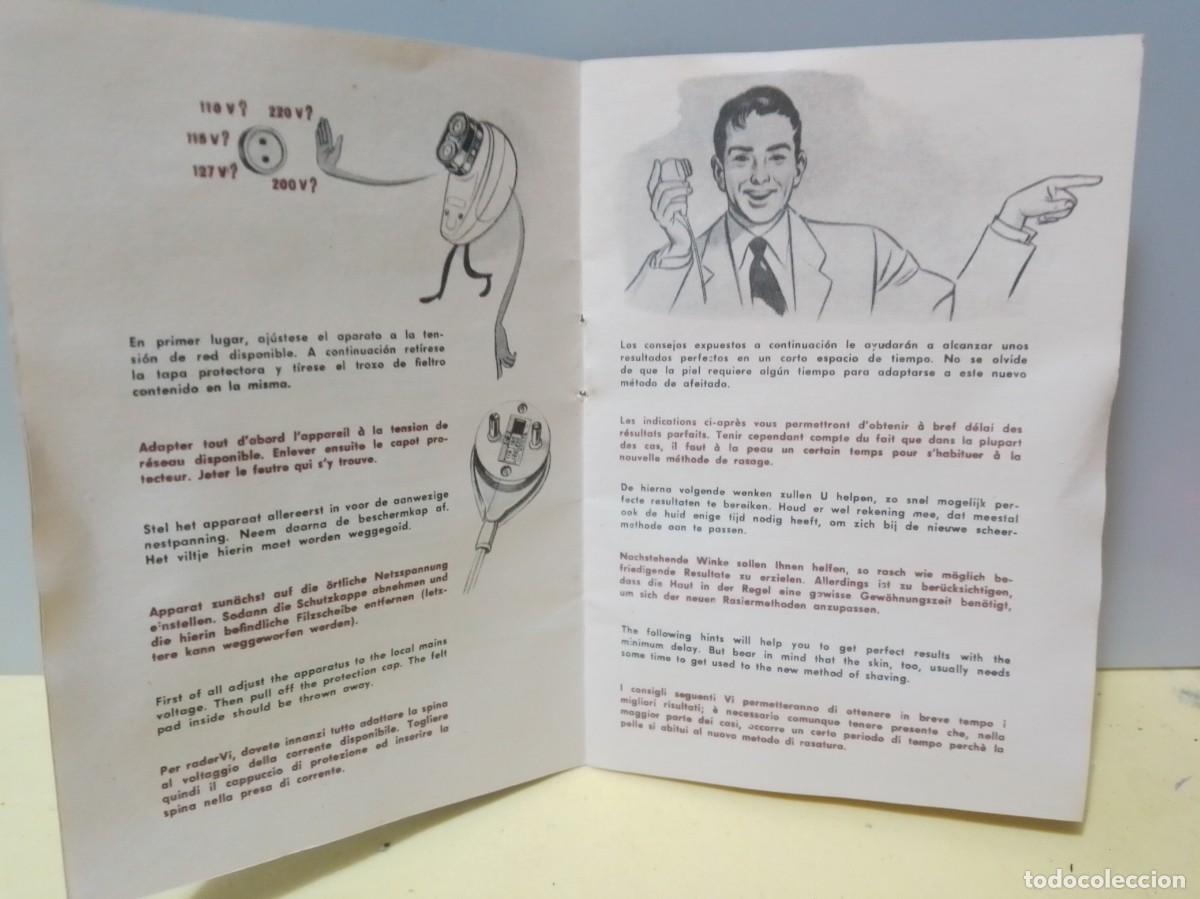 110 V?
220 V?
115 V?
127 V?
200 V?
En primer lugar, ajústese el aparato a la ten-
sión de red disponible. A continuación retírese
la tapa protectora y tírese el trozo de fieltro
contenido en la misma.
Adapter tout d'abord l'appareil à la tension de
réseau disponible. Enlever ensuite le capot pro-
tecteur. Jeter le feutre qui s'y trouve.
Stel het apparaat allereerst in voor de aanwezige
nestpanning. Neem daarna de beschermkap af.
Het viltje hierin moet worden weggegoid.
Apparat zunächst auf die örtliche Netzspannung
einstellen. Sodann die Schutzkappe abnehmen und
die hierin befindliche Filzscheibe entfernen (letz-
tere kann weggeworfen werden).
First of all adjust the apparatus to the local mains
voltage. Then pull off the protection cap. The felt
pad inside should be thrown away.
Per raderVi, dovete innanzi tutto adattare la spina
al voltaggio della corrente disponibile. Togliere
quindi il cappuccio di protezione ed inserire la
spina nella presa di corrente.
Los consejos expuestos a continuación le ayudarán a alcanzar unos
resultados perfectos en un corto espacio de tiempo. No se olvide
de que la piel requiere algún tiempo para adaptarse a este nuevo
método de afeitado.
Les indications ci-après vous permettront d'obtenir à bref délai des
résultats parfaits. Tenir cependant compte du fait que dans la plupart
des cas, il faut à la peau un certain temps pour s'habituer à la
nouvelle méthode de rasage.
De hierna volgende wenken zullen U helpen, zo snel mogelijk per-
fecte resultaten te bereiken. Houd er wel rekening mee, dat meestal
ook de huid enige tijd nodig heeft, om zich bij de nieuwe scheer-
methode aan te passen.
Nachstehende Winke sollen Ihnen helfen, so rasch wie möglich be-
friedigende Resultate zu erzielen. Allerdings ist zu berücksichtigen,
dass die Haut in der Regel eine gewisse Gewöhnungszeit benötigt,
um sich der neuen Rasiermethoden anzupassen.
The following hints will help you to get perfect results with the
minimum delay. But bear in mind that the skin, too, usually needs
some time to get used to the new method of shaving.
I consigli seguenti Vi permetteranno di ottenere in breve tempo i
migliori risultati; è necessario comunque tenere presente che, nella
maggior parte dei casi, occorre un certo periodo di tempo perchè la
pelle si abitui al nuovo metodo di rasatura.
todocoleccion